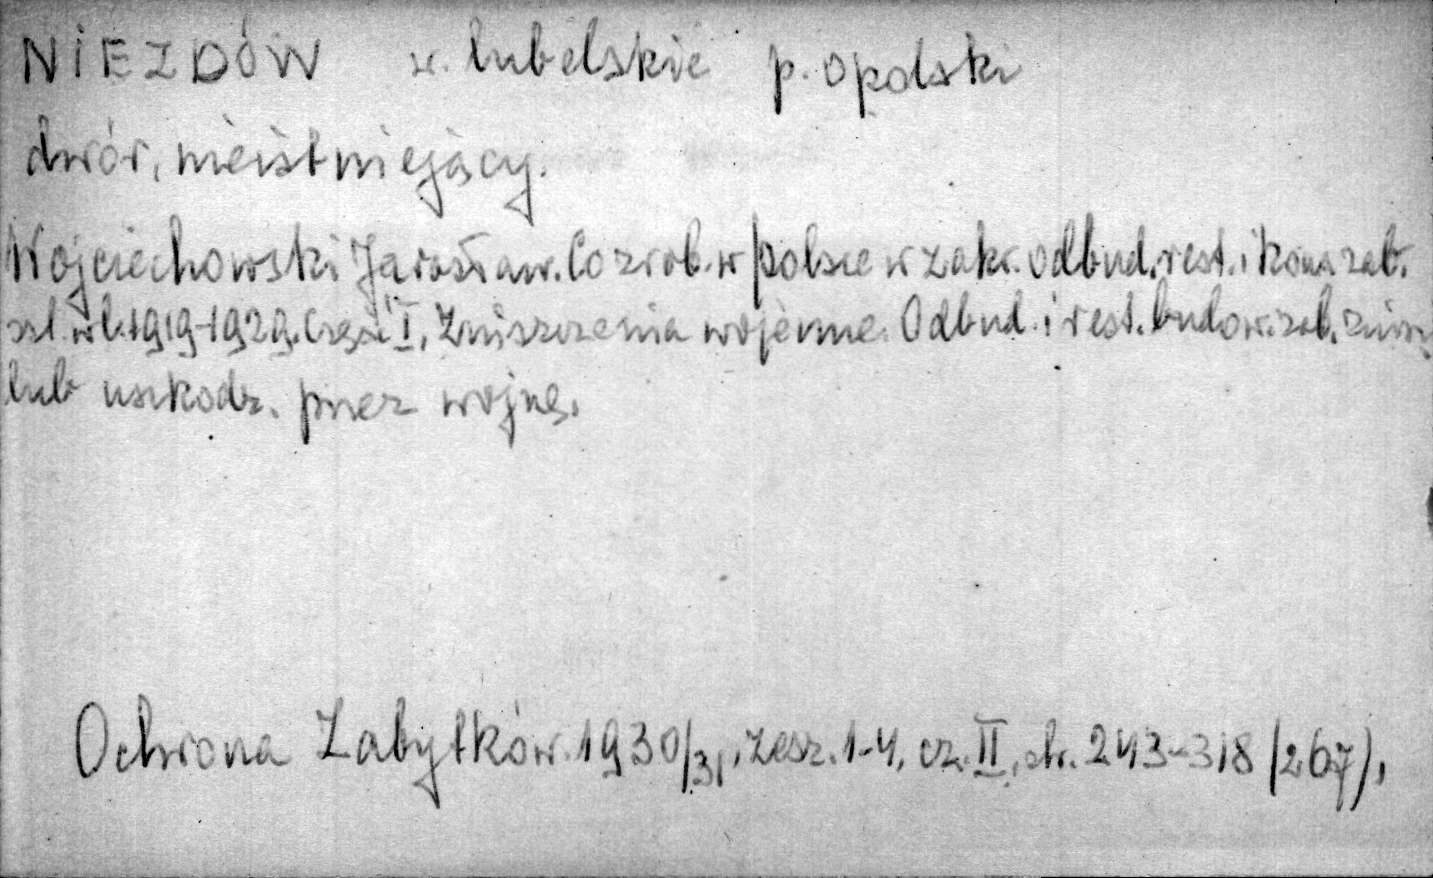 NIEZDÓW w. lubelskie p. opolski
dwór, nieistniejący.
Wojciechowski Jarosław. Co zrob. w Polsce w zakr. odbud. rest. i kons. zab.
szt. w l. 1919-1929. Część I, Zniszczenia wojenne. Odbud. i rest. budow. zab. zniszcz
lub uszkodz. przez wojnę.
Ochrona Zabytków. 1930/31, zesz. 1-4, cz. II, str. 243-318 /267/,